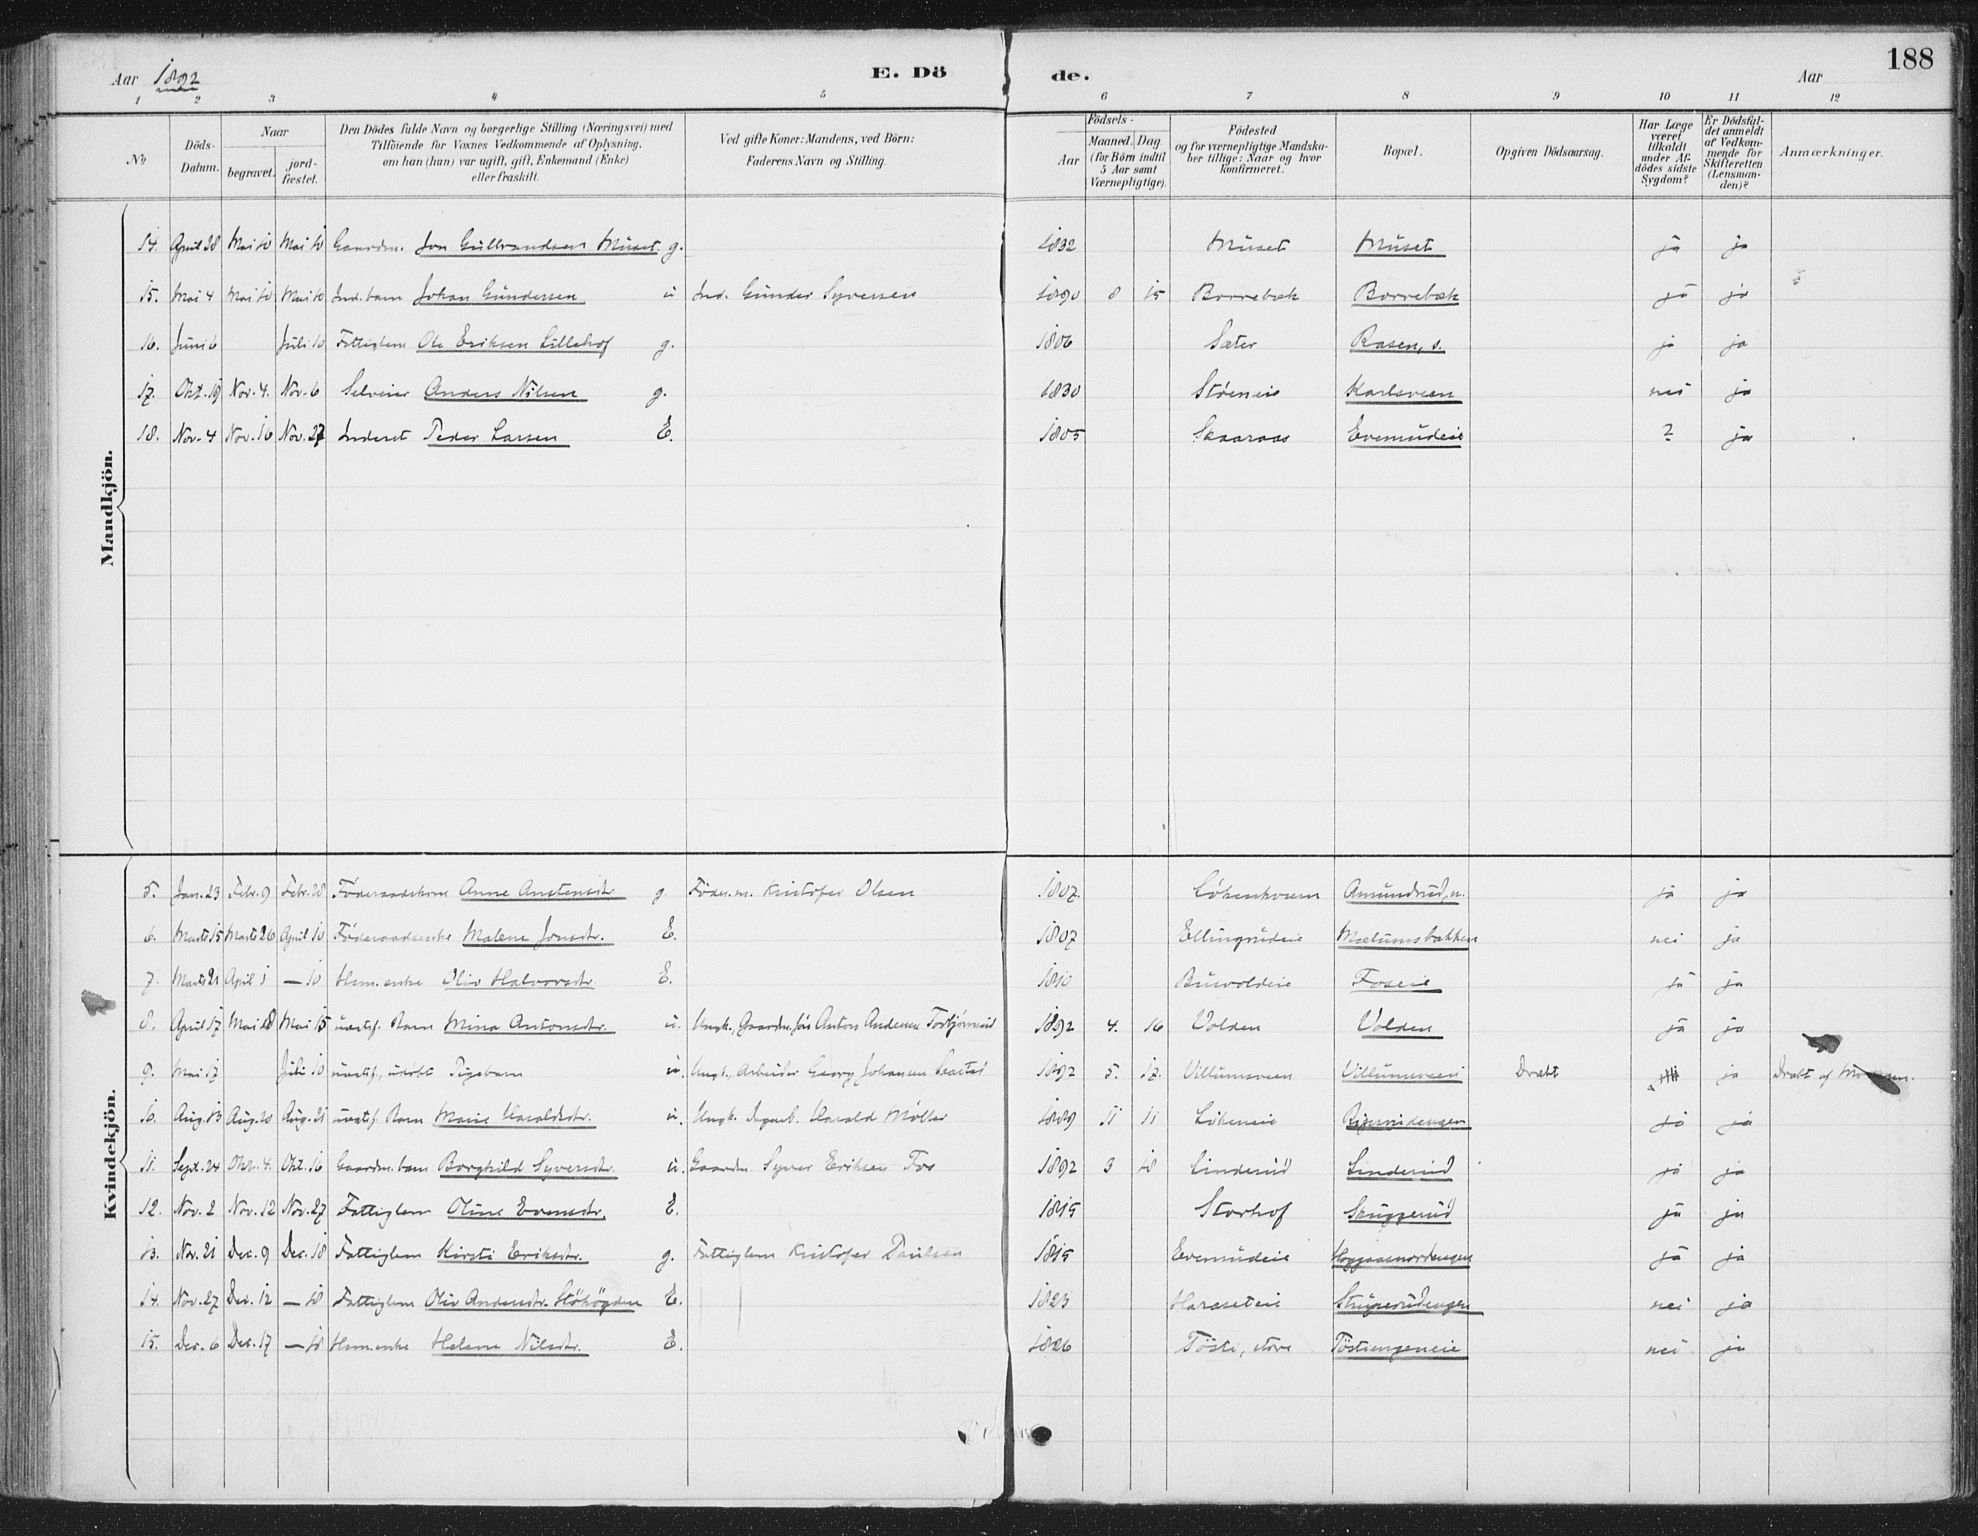 188
Aar 1892 E. Dö de. Aar
1 2 3 4 5 6 7 8 9 10 11 12
No
Döds-Datum.
Naar
begravet.
jord-fæstet.
Den Dödes fulde Navn og borgerlige Stilling (Næringsvei) med
Tilföiende for Voxnes Vedkommende af Oplysning,
om han (hun) var ugift, gift, Enkemand (Enke)
eller fraskilt.
Ved gifte Koner: Mandens, ved Börn:
Faderens Navn og Stilling.
Födsels-
Aar
Maaned. Dag
(for Börn indtil
5 Aar samt
Værnepligtige).
Födested
og for værnepligtige Mandska-
ber tillige: Naar og hvor
konfirmeret.
Bopæl.
Opgiven Dödsaarsag.
Har Læge
været
tilkaldt
under Af-
dödes sidste
Sygdom?
Er Dödsfal-
det anmeldt
af Vedkom-
mende for
Skifteretten
(Lensman-
den)?
Anmærkninger.
Mandkjön.
14. April 28 Mai 10 Mai 10 Gaardm. Jon Gulbrandsen Muset g. 1832 Muset Muset ja ja
15. Mai 4 Mai 10 Mai 10 Ind. barn Johan Gundersen u Ind. Gunder Syversen 1890 8 15 Borrebæk Borrebæk ja ja
16. Juni 6 Juli 10 Fattiglem Ole Eriksen Lillehof g. 1806 Sæter Rasen, s. ja ja
17. Okt. 19 Nov. 4. Nov. 6 Selveier Anders Nilsen g. 1830 Støeneie Karlsveen nei ja
18. Nov. 4 Nov. 16 Nov. 27 Inderst Peder Larsen E. 1805 Skaaraas Evenrudeie ? ja
Kvindekjön.
5. Jan. 23 Febr. 9 Febr. 28 Føderaadskone Anne Amstensdtr g. Føder. m. Kristofer Olsen 1807. Løkenhvam Amundrud, n. ja ja
6. Marts 15 Marts 26 April 10 Føderaadsenke Malene Jonsdtr. E. 1807 Ellingrudeie Mælumsbakken nei ja
7. Marts 21 April 1 — 10 Hsm. enke Oliv Halvorsdtr. E. 1810 Buvoldeie Foseie ja ja
8. April 17 Mai 18 Mai 15 uægtef. Barn Mina Antonsdtr. u. Ungk., Gaardm. søn Anton Andersen Torbjørnrud 1892 4. 16 Volden Volden ja ja
9. Mai 17 Juli 10 uægtef., udøbt Pigebarn u. Ungk., Arbeider Georg Johansen 1892 5. 17. Villumsveen Villumsveen Dræbt ja Dræbt af Moderen.
10. Aug. 13 Aug. 20 Aug. 21 uægtef. Barn Marie Haraldsdtr. u. Ungk. Harald Møller 1889 11 11 Løkeneie ja ja
11. Sept. 24 Okt. 4. Okt. 16 Gaardm. barn Borghild Syversdtr. u. Gaardm. Syver Eriksen Fos 1892 3 18 Linderud Linderud ja ja
12. Nov. 2 Nov. 12 Nov. 27 Fattiglem Oline Evensdtr. E. 1815 Storhof Skuggerud ja ja
13. Nov. 21 Dec. 9 Dec. 18 Fattiglem Kirsti Eriksdtr. g. Fattiglem Kristofer Paulsen 1815 Evenrudeie ja ja
14. Nov. 27 Dec. 12 — 18 Fattiglem Oliv Andersdtr. E. 1823 Haraseteie Struperudengen nei ja
15. Dec. 6 Dec. 17 — 18 Hsm. enke Helene Nilsdtr. E. 1826 Tøste, store Tøstiengeneie nei ja